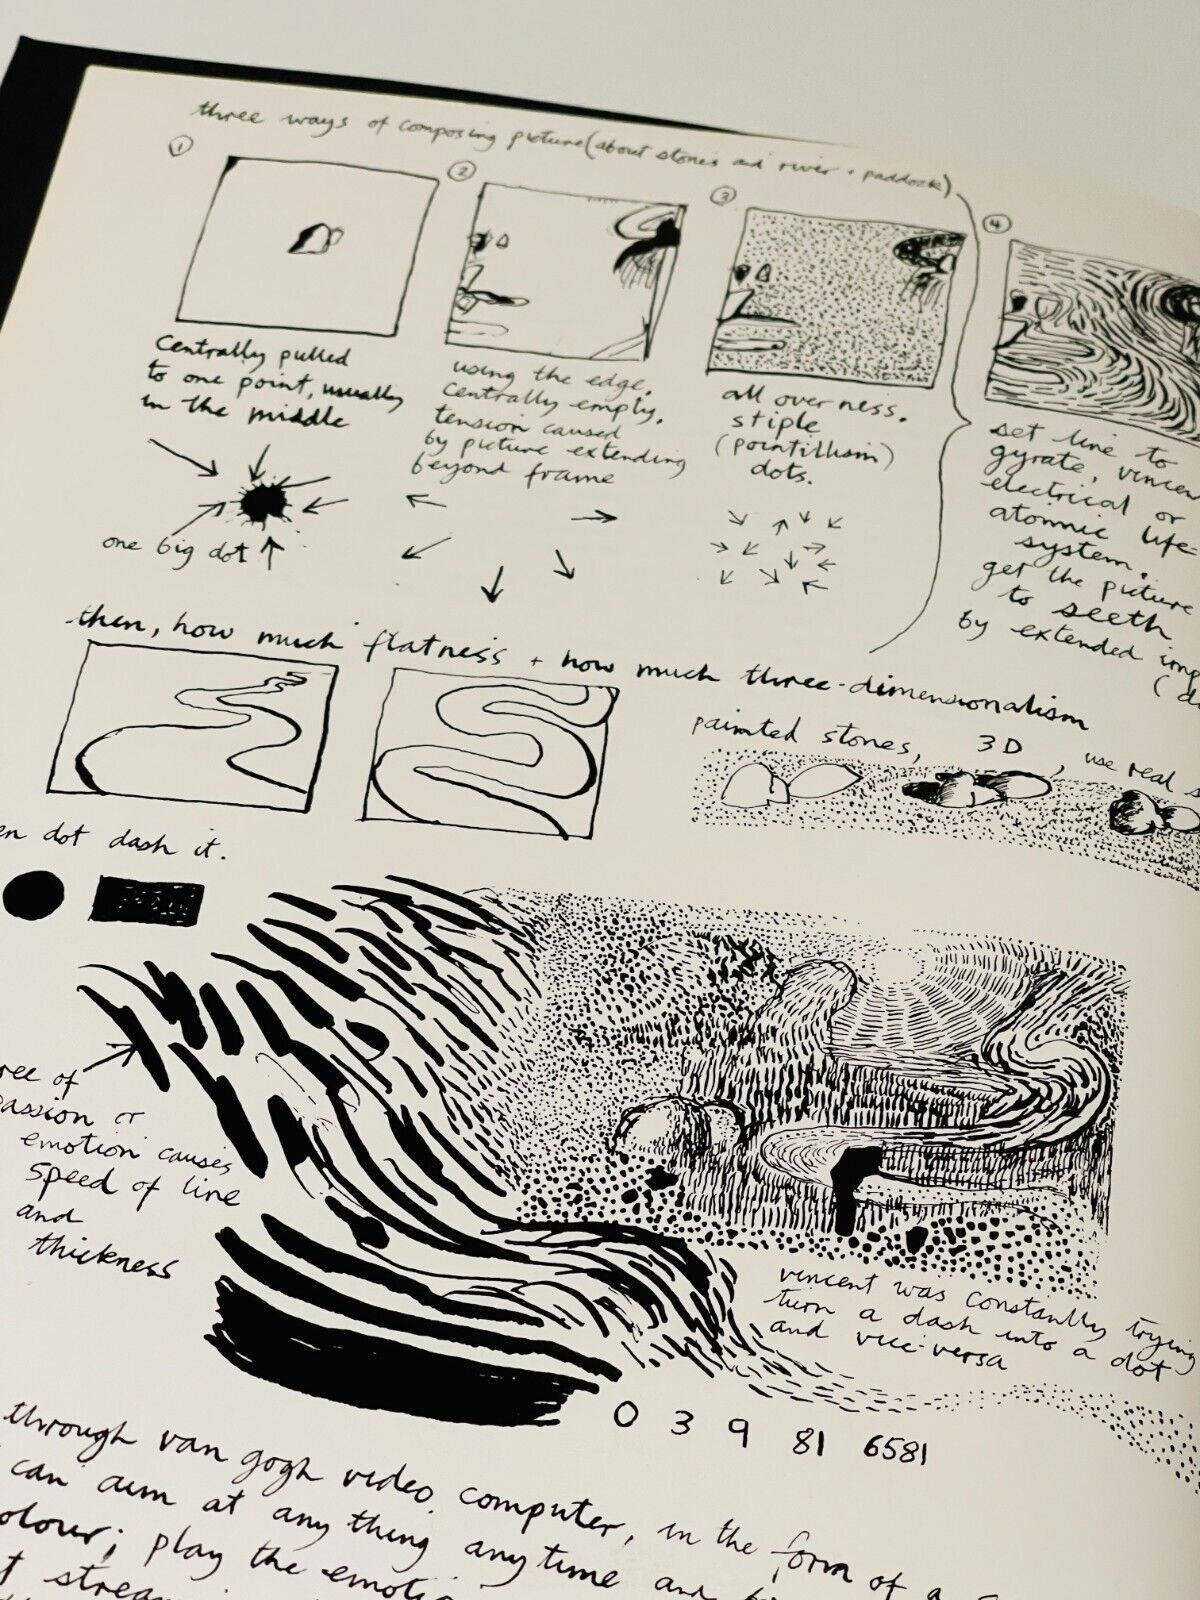 three ways of composing picture (about stones and river + paddock)
①
②
③
④
Centrally pulled
to one point, usually
in the middle
using the edge.
Centrally empty.
tension caused
by picture extending
beyond frame
all over ness.
stiple
(pointillism)
dots.
set line to
gyrate, vincen
electrical or
atomic life-
system.
get the picture
to seeth
by extended imp
one big dot
then, how much flatness + how much three-dimensionalism
painted stones, 3D, use real s
en dot dash it.
ree of
passion or
emotion causes
speed of line
and
thickness
vincent was constantly trying
turn a dash into a dot
and vice-versa
0 3 9 81 6581
through van gogh video computer, in the form of a
can aim at any thing any time and
olour; play the emoti
t strea